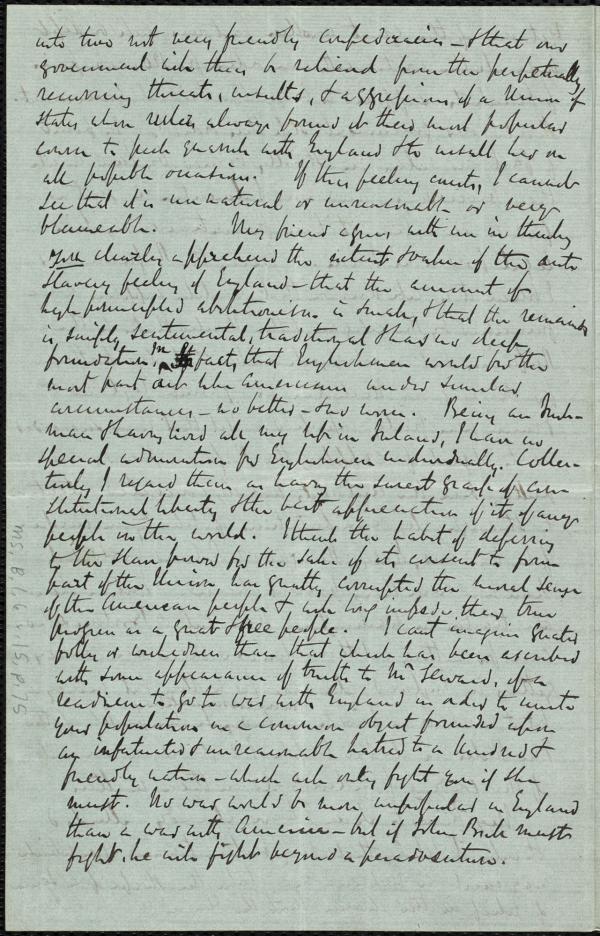 into two not very friendly confederacies – & that our
government will then be relieved from the perpetually
recurring threats, insults, & aggressions, of a Union of
states whose rulers always found it their most popular
course to pick quarrels with England & to insult her on
all possible occasions. If this feeling exists, I cannot
see that it is unnatural or unreasonable or very
blameable. My friend agrees with me in thinking
you clearly apprehend the extent & value of the anti
slavery feeling of England – that the amount of
high principled abolitionism is small, & that the remainder
is, simply, sentimental, traditional & has no deep
foundation in fact, that Englishmen would for the
most part act like Americans under similar
circumstances – no better – & no worse. Being an Irish-
man & having lived all my life in Ireland, I have no
special admiration for Englishmen individually. Collec-
tively I regard them as having the surest grasp of con-
stitutional liberty & the best appreciation of it of any
people in the world. I think the habit of deferring
to the slave power for the sake of its consent to form
part of the Union has greatly corrupted the moral sense
of the American people & will long impede their true
progress as a great & free people. I can't imagine greater
folly or wickedness than that which has been ascribed
with some appearance of truth to Mr Seward, of a
readiness to go to war with England in order to unite
your population in a common object founded upon
an infatuated & unreasonable hatred to a kindred &
friendly nation – which will only fight you if she
must. No war would be more unpopular in England
than a war with America – but if John Bull must
fight, he will fight beyond a peradventure.
MS. B.1.6 v.15 p.75